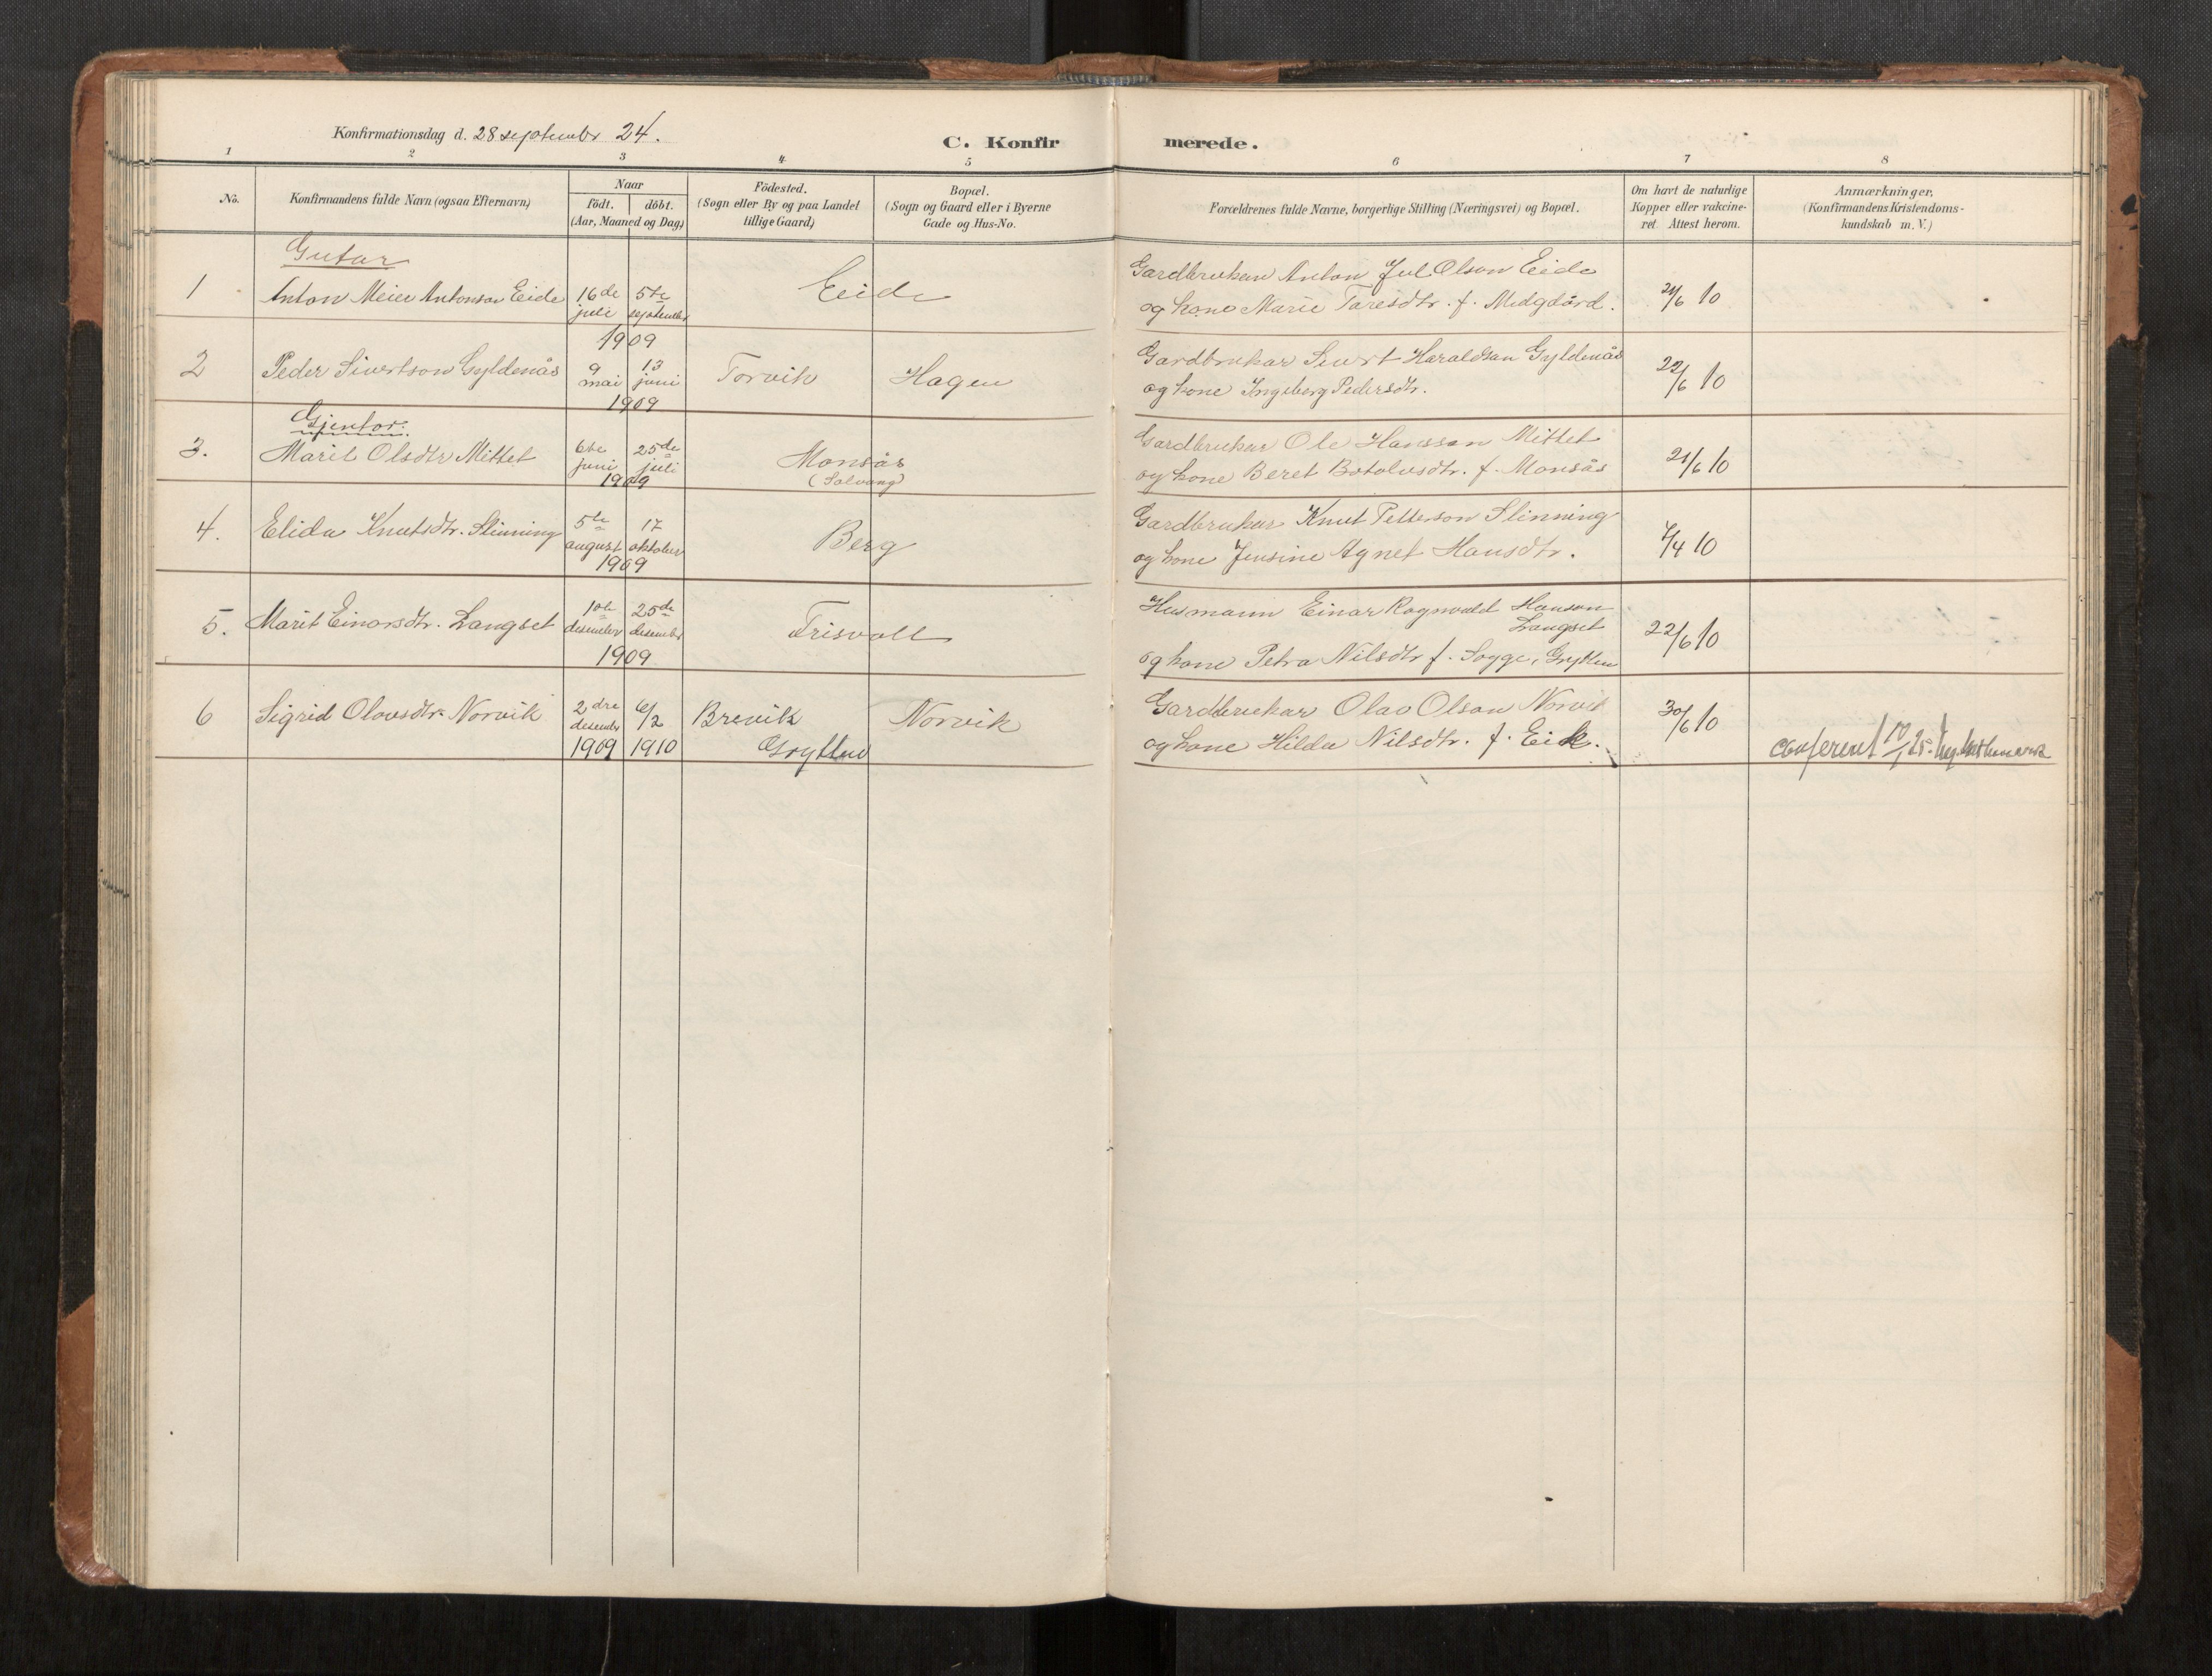 Konfirmationsdag d. 28 septembr 24.
C. Konfirmerede.
1 2 3 4 5 6 7 8
No.
Konfirmandens fulde Navn (ogsaa Efternavn)
Naar
födt. döbt.
(Aar, Maaned og Dag)
Födested.
(Sogn eller By og paa Landet
tillige Gaard)
Bopæl.
(Sogn og Gaard eller i Byerne
Gade og Hus-No.
Forældrenes fulde Navne, borgerlige Stilling (Næringsvei) og Bopæl.
Om havt de naturlige
Kopper eller vakcine-
ret. Attest herom.
Anmærkninger.
(Konfirmandens Kristendoms-
kundskab m. V.)
Gutar
1 Anton Meier Antonson Eide 16de juli 5te september 1909 Eide
Gardbrukar Anton Jul. Olson Eide
og kone Marie Taresdtr. f. Midgård. 21/6 10
2 Peder Sivertson Gyldenås 9 mai 13 juni 1909 Torvik Hagen
Gardbrukar Sivert Haraldson Gyldenås
og kone Ingeborg Pedersdtr. 22/6 10
Gjentor:
3. Marit Olsdtr Mittet 6te juni 25de juli 1909 Monsås
(Solvang)
Gardbrukar Ole Hansson Mittet
og kone Beret Botolvsdtr. f. Monsås 21/6 10
4. Elida Knutsdtr. Slinning 5te august 17 oktober 1909 Berg
Gardbrukar Knut Petterson Slinning
og kone Jensine Agnet Hansdtr. 7/4 10
5. Marit Einarsdtr. Langset 10de desember 25de desember 1909 Trisvoll
Husmann Einar Rognvald Hanson
Langset
og kone Petra Nilsdtr f. Sogge, Grytten 22/6 10
6 Sigrid Olavsdtr. Norvik 2dre desember 1909 6/2 1910 Brevik
Grytten
Norvik
Gardbrukar Olav Olson Norvik
og kone Hilda Nilsdtr. f. Eik. 30/6 10
Conferert 10/1 25.